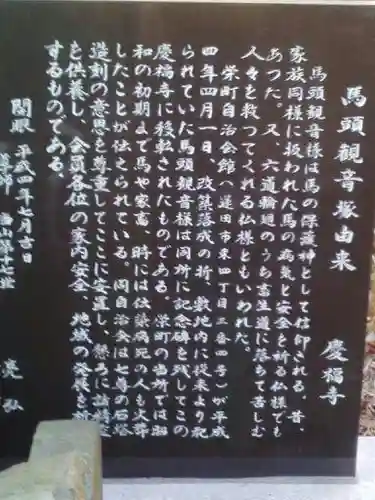 馬頭観音塚由来　慶福寺
馬頭観音様は馬の保護神として信仰される。昔、
家族同様に扱われた馬の病気と安全を祈る仏様でも
あつた。又、六道輪廻のうち畜生道に落ちて苦しむ
人々を救つてくれる仏様ともいわれる。
栄町自治会館（蓮田市東四丁目三番四号）が平成
四年四月一日、改築落成の折、敷地内に従来より祀
られていた馬頭観音様は同所に記念碑を残してこの
慶福寺に移転されたものである。栄町の当所では昭
和の初期まで馬や家畜、時には伝染病死の人も火葬
したことが伝えられている。同自治会は七尊の石塔
造刻の意思を尊重してここに安置し、懇ろに諸精霊
を供養し、会員各位の家内安全、地域の発展を祈
するものである。
開眼　平成四年七月吉日